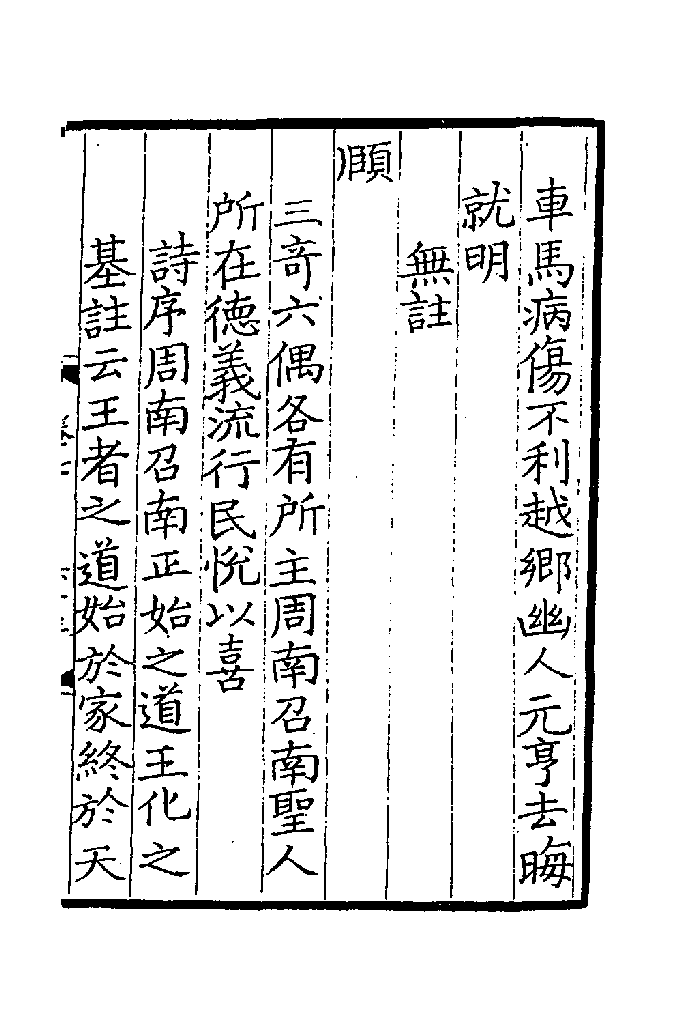 車馬病傷不利越鄉幽人元亨去晦
就明
無註
頤
三竒六偶各有所主周南召南聖人
所在德義流行民悅以喜
詩序周南召南正始之道王化之
基註云王者之道始於家終於天